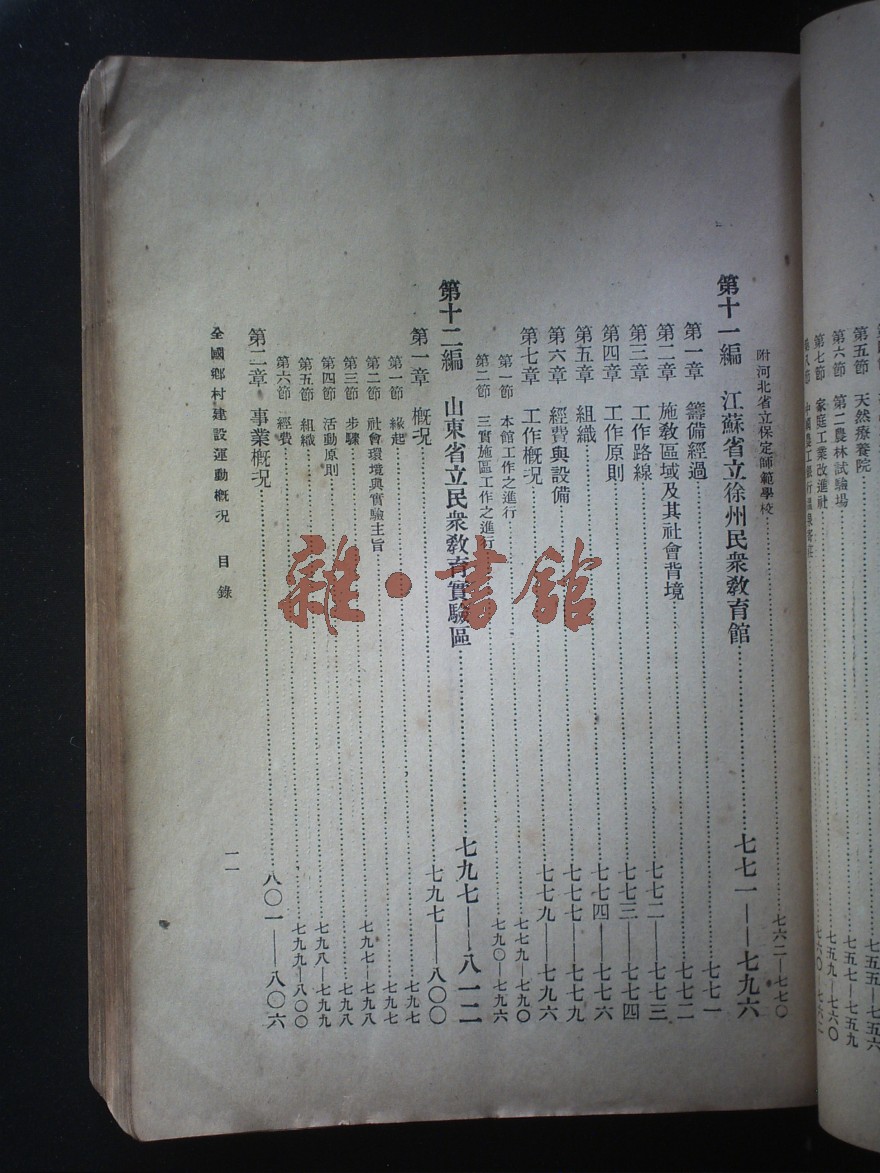 第五節　天然療養院……七五五—七五六
第六節　第二農林試驗場……七五七—七五九
第七節　家庭工業改進社……七五九—七六〇
附河北省立保定師範學校……七六二—七七〇
第十一編　江蘇省立徐州民衆教育館……七七一——七九六
第一章　籌備經過……七七一
第二章　施教區域及其社會背境……七七二
第三章　工作路線……七七二——七七三
第四章　工作原則……七七三——七七四
第五章　組織……七七四—七七六
第六章　經費與設備……七七七—七七九
第七章　工作概况……七七九——七九六
第一節　本館工作之進行……七七九—七九〇
第二節　三實施區工作之進行……七九〇—七九六
第十二編　山東省立民衆教育實驗區……七九七——八一二
第一章　概况……七九七——八〇〇
第一節　緣起……七九七
第二節　社會環境與實驗主旨……七九七—七九八
第三節　步驟……七九八
第四節　活動原則……七九八—七九九
第五節　組織……七九九—八〇〇
第六節　經費
第二章　事業概况……八〇一——八〇六
全國鄉村建設運動概况　目錄
一一
雜·書館